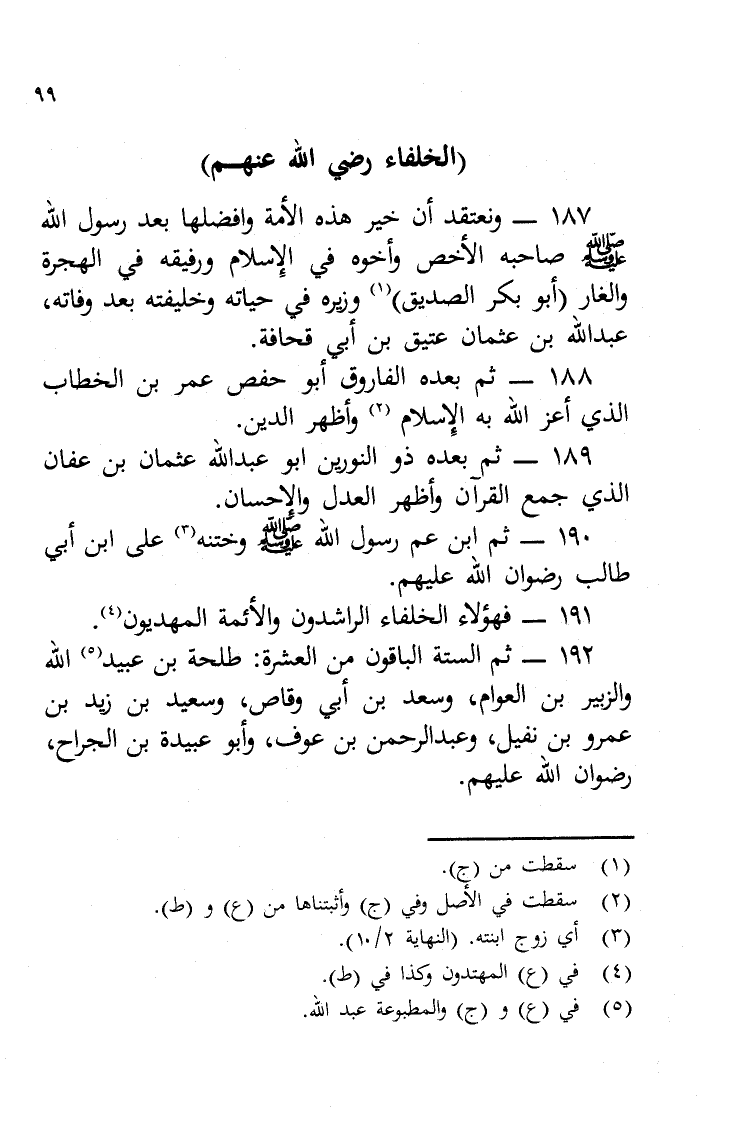 ٩٩
(الخلفاء رضي الله عنهم)
١٨٧ ــ ونعتقد أن خير هذه الأمة وافضلها بعد رسول الله
ﷺ صاحبه الأخص وأخوه في الإسلام ورفيقه في الهجرة
والغار (أبو بكر الصديق)(١) وزيره في حياته وخليفته بعد وفاته،
عبدالله بن عثمان عتيق بن أبي قحافة.
١٨٨ ــ ثم بعده الفاروق أبو حفص عمر بن الخطاب
الذي أعز الله به الإسلام (٢) وأظهر الدين.
١٨٩ ــ ثم بعده ذو النورين ابو عبدالله عثمان بن عفان
الذي جمع القرآن وأظهر العدل والإحسان.
١٩٠ ــ ثم ابن عم رسول الله ﷺ وختنه(٣) على ابن أبي
طالب رضوان الله عليهم.
١٩١ ــ فهؤلاء الخلفاء الراشدون والأئمة المهديون(٤).
١٩٢ ــ ثم الستة الباقون من العشرة: طلحة بن عبيد(٥) الله
والزبير بن العوام، وسعد بن أبي وقاص، وسعيد بن زيد بن
عمرو بن نفيل، وعبدالرحمن بن عوف، وأبو عبيدة بن الجراح،
رضوان الله عليهم.
(١) سقطت من (ج).
(٢) سقطت في الأصل وفي (ج) وأثبتناها من (ع) و (ط).
(٣) أي زوج ابنته. (النهاية ١٠/٢).
(٤) في (ع) المهتدون وكذا في (ط).
(٥) في (ع) و (ج) والمطبوعة عبد الله.